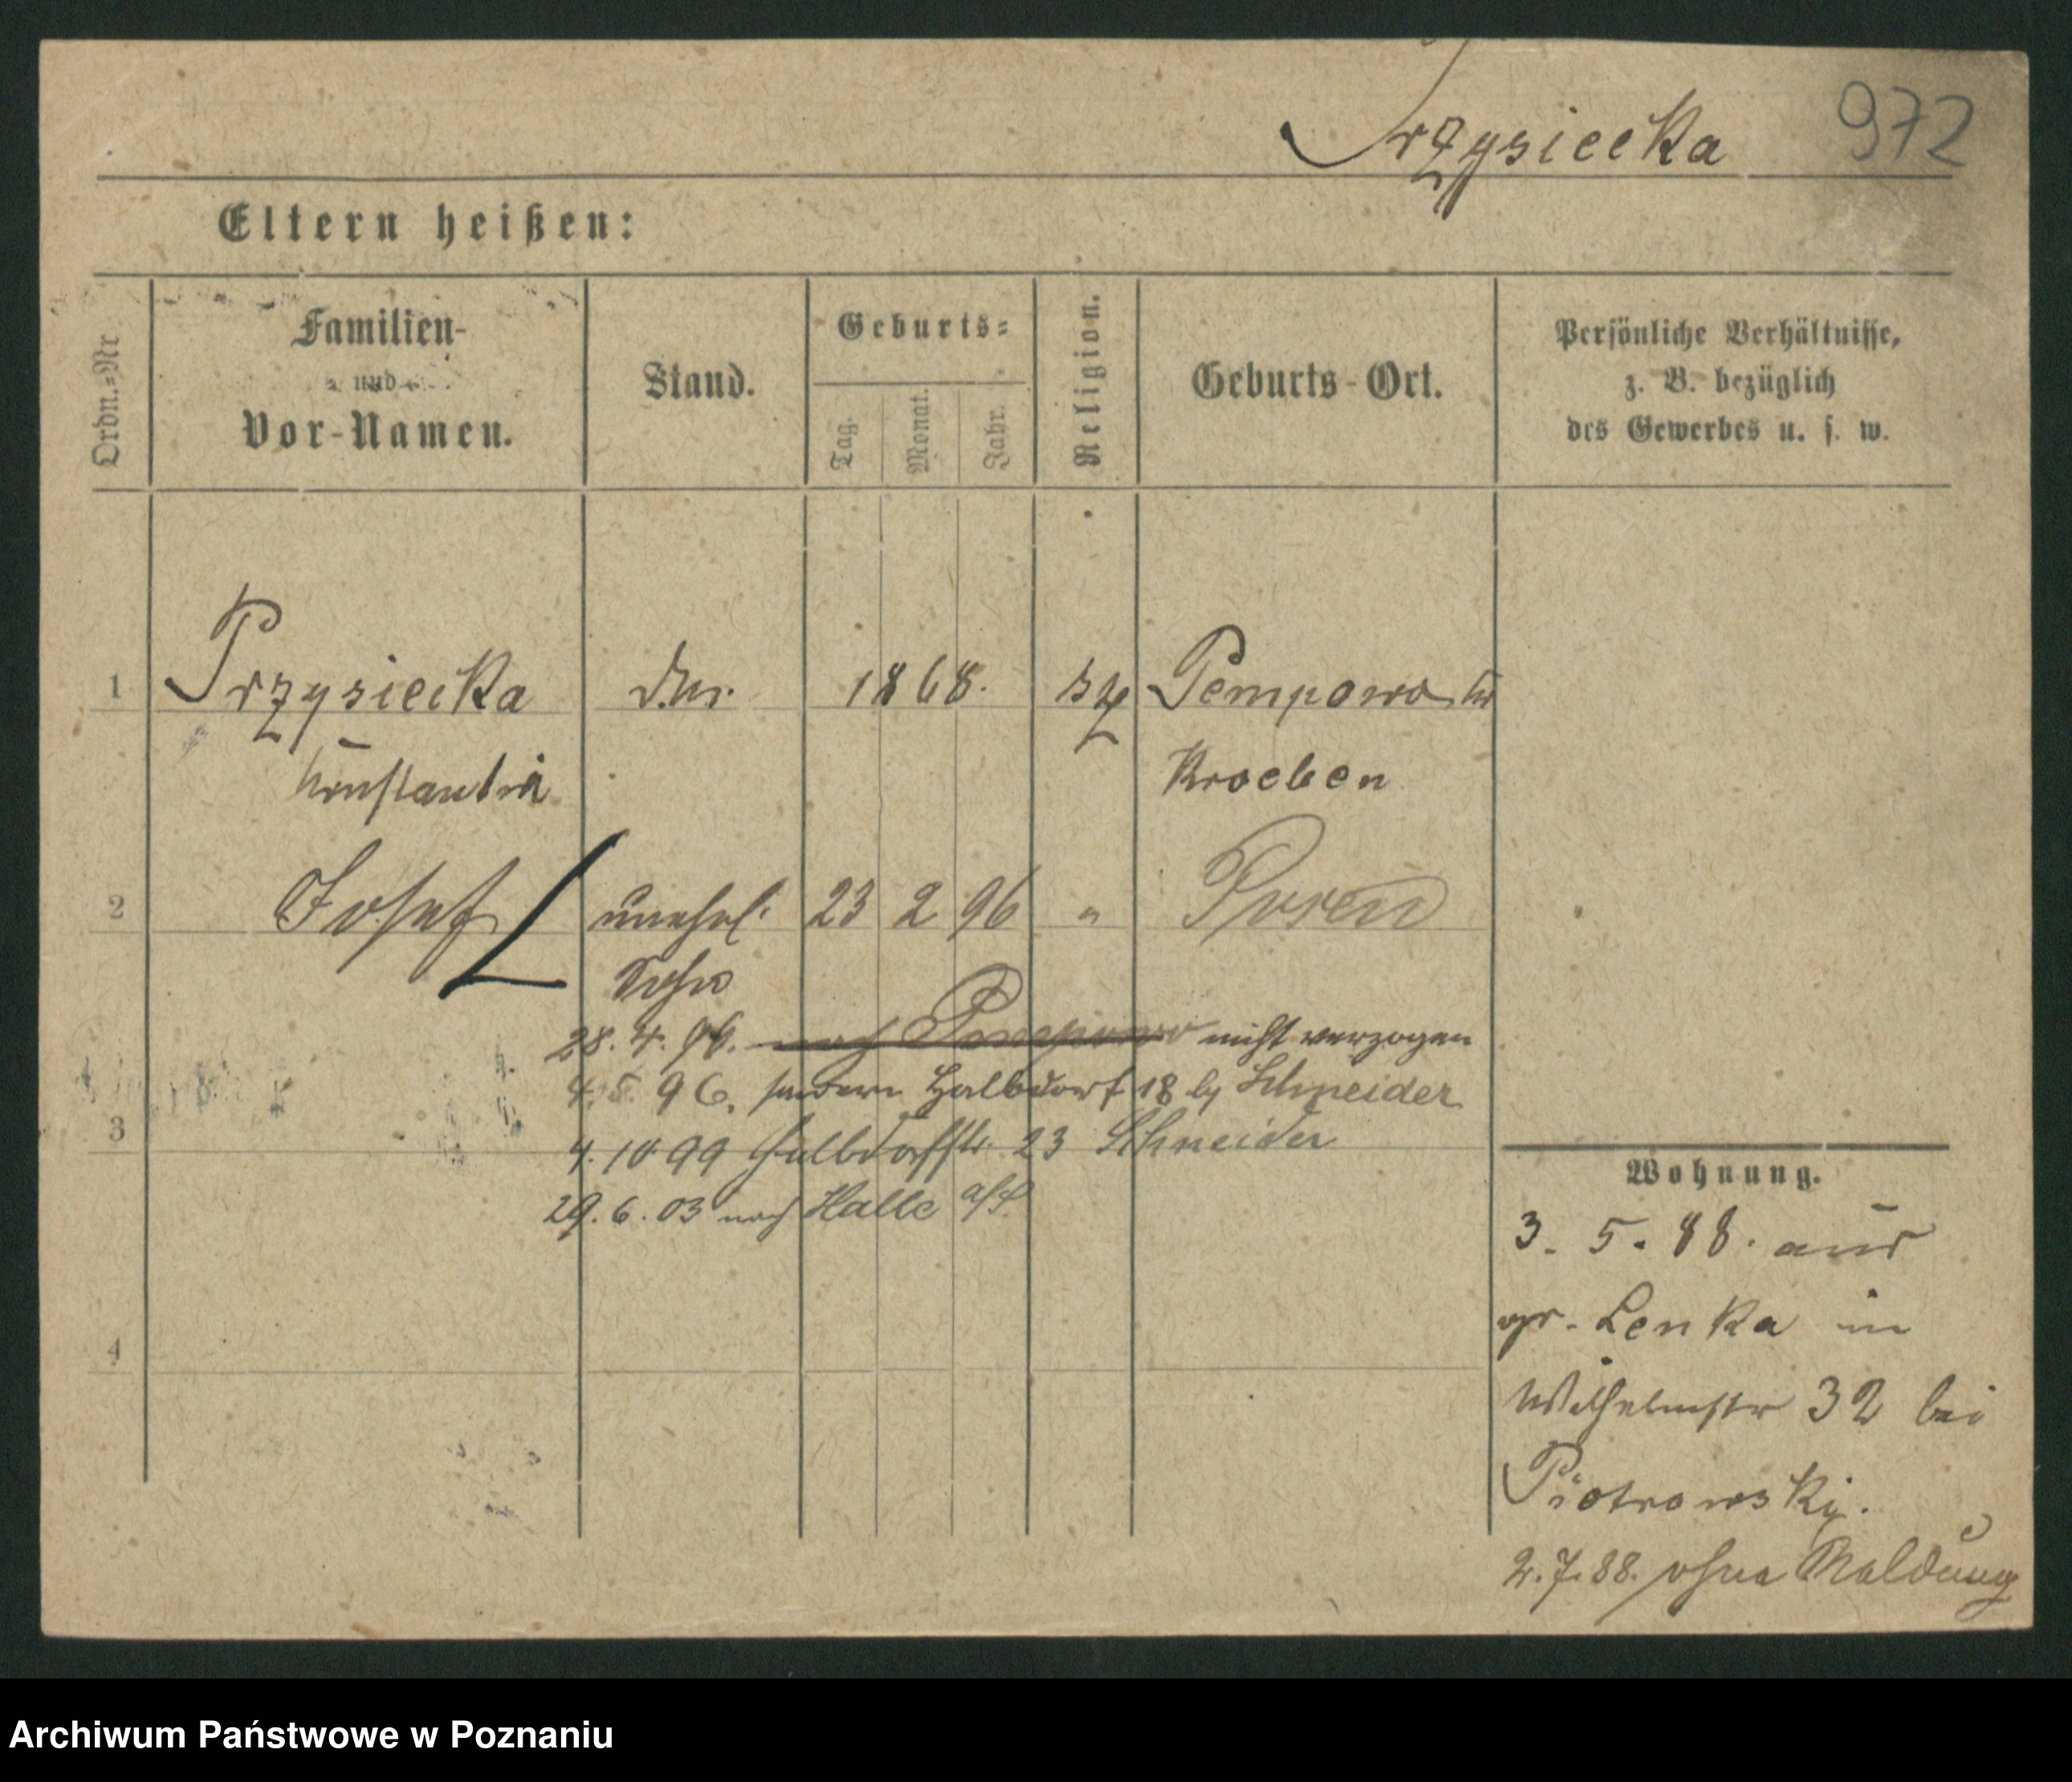 Przysiecka 972
Eltern heißen:
Ordn.=Nr
Familien-
und
Vor-Namen.
Stand.
Geburts=
Tag.
Monat.
Jahr.
Religion.
Geburts-Ort.
Persönliche Verhältnisse,
z. B. bezüglich
des Gewerbes u. s. w.
1 Przysiecka 1868. Pempowo
Konstantia Kroeben
2 Josef unehel. 23 2 96 " Posen
Sohn
28. 4. 96. nach nicht verzogen
4. 5. 96. sondern Halbdorf 18 by Schneider
3
4. 10 99 Halbdorfstr. 23 Schneider
29. 6. 03 nach Halle a/S.
4
Wohnung.
3. 5. 88. aus
gr. Lenka in
Wilhelmstr 32 bei
Piotrowski.
2. 7. 88. ohne Meldung
Archiwum Państwowe w Poznaniu